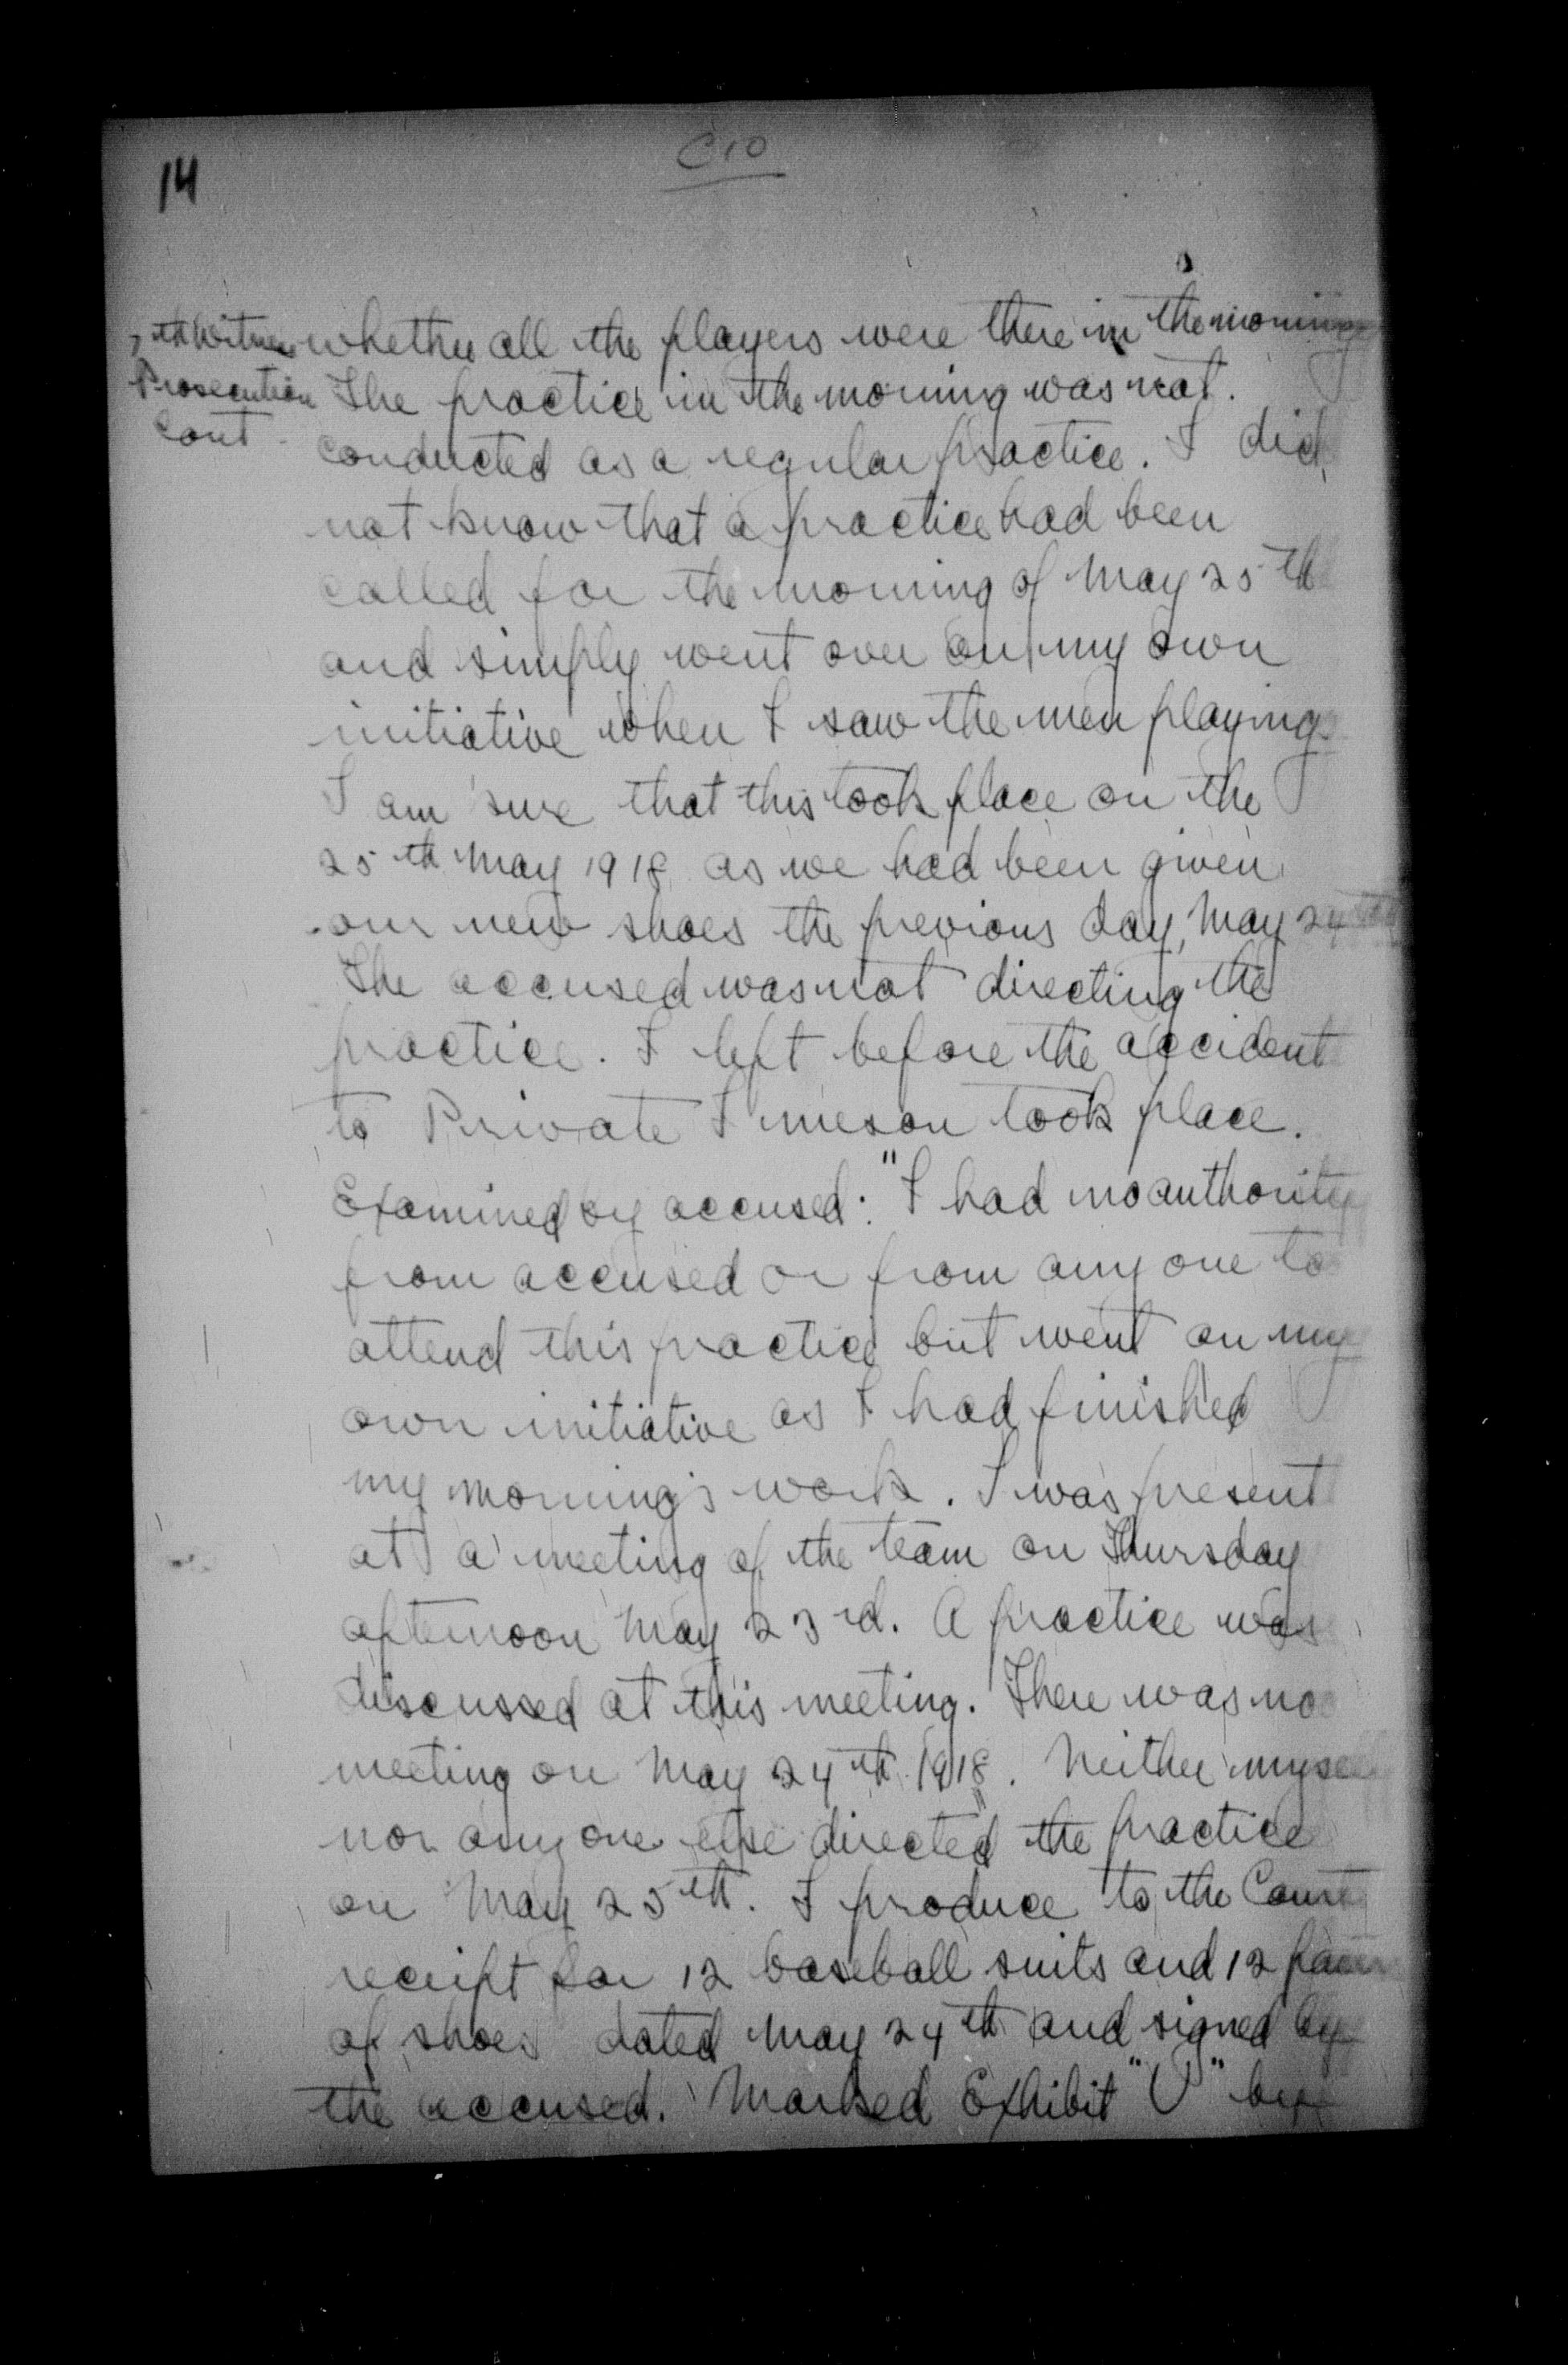 14
C10
7th Witness
Prosecution
Cont.
whether all the players were there in the morning
The practice in the morning was not.
conducted as a regular practice. I did
not know that a practice had been
called for the morning of May 25th
and simply went over on my own
initiative when I saw the men playing.
I am sure that this took place on the
25th May 1918 as we had been given
our new shoes the previous day, May 24th
The accused was not directing the
practice. I left before the accident
to Private Imeson took place.
Examined by accused: "I had no authority
from accused or from any one to
attend this practice but went on my
own initiative as I had finished
my morning's work. I was present
at a meeting of the team on Thursday
afternoon May 23rd. A practice was
discussed at this meeting. There was no
meeting on May 24th 1918. Neither myself
nor any one else directed the practice
on May 25th. I produce to the Court
receipt for 12 baseball suits and 12 pairs
of shoes dated May 24th and signed by
the accused. Marked Exhibit "U" by